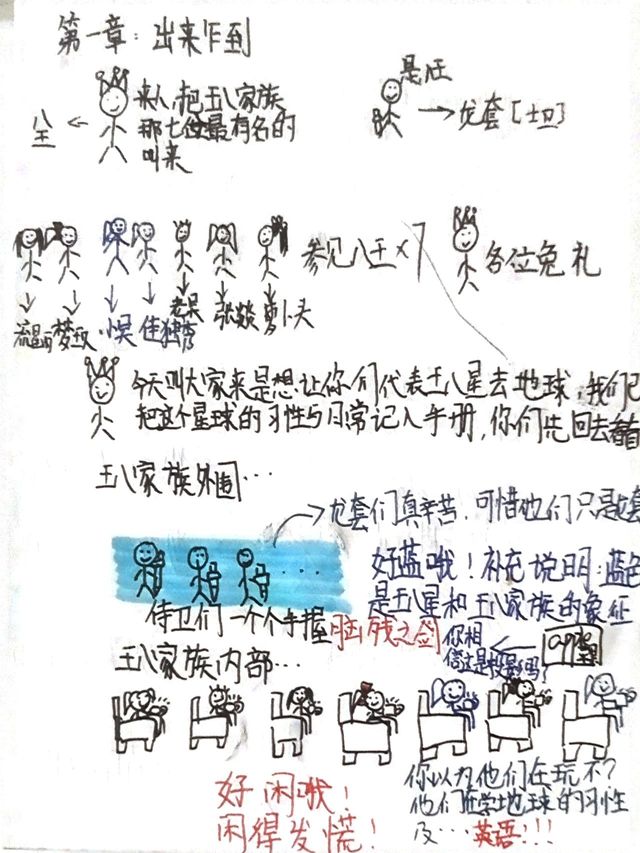 第一章：出来乍到
八王
来人，把王八家族
那七位最有名的
叫来
是，八王
龙套[士卫]
参见八王×7
各位免礼
老呆
张燚
萝卜头
梦玉
佳
独秀
今天叫大家来是想让你们代表王八星去地球，我们已
把这个星球的习性与日常记入手册，你们先回去看
王八家族外围…
龙套们真辛苦，可惜他们只是龙套
好蓝哦！补充说明：蓝色
是王八星和王八家族的象征
侍卫们一个个手握脑残之剑
你相
信这是投影吗？
王八家族内部…
好闲哦！
闲得发慌！
你以为他们在玩不？
他们在学地球的习性
及…英语!!!